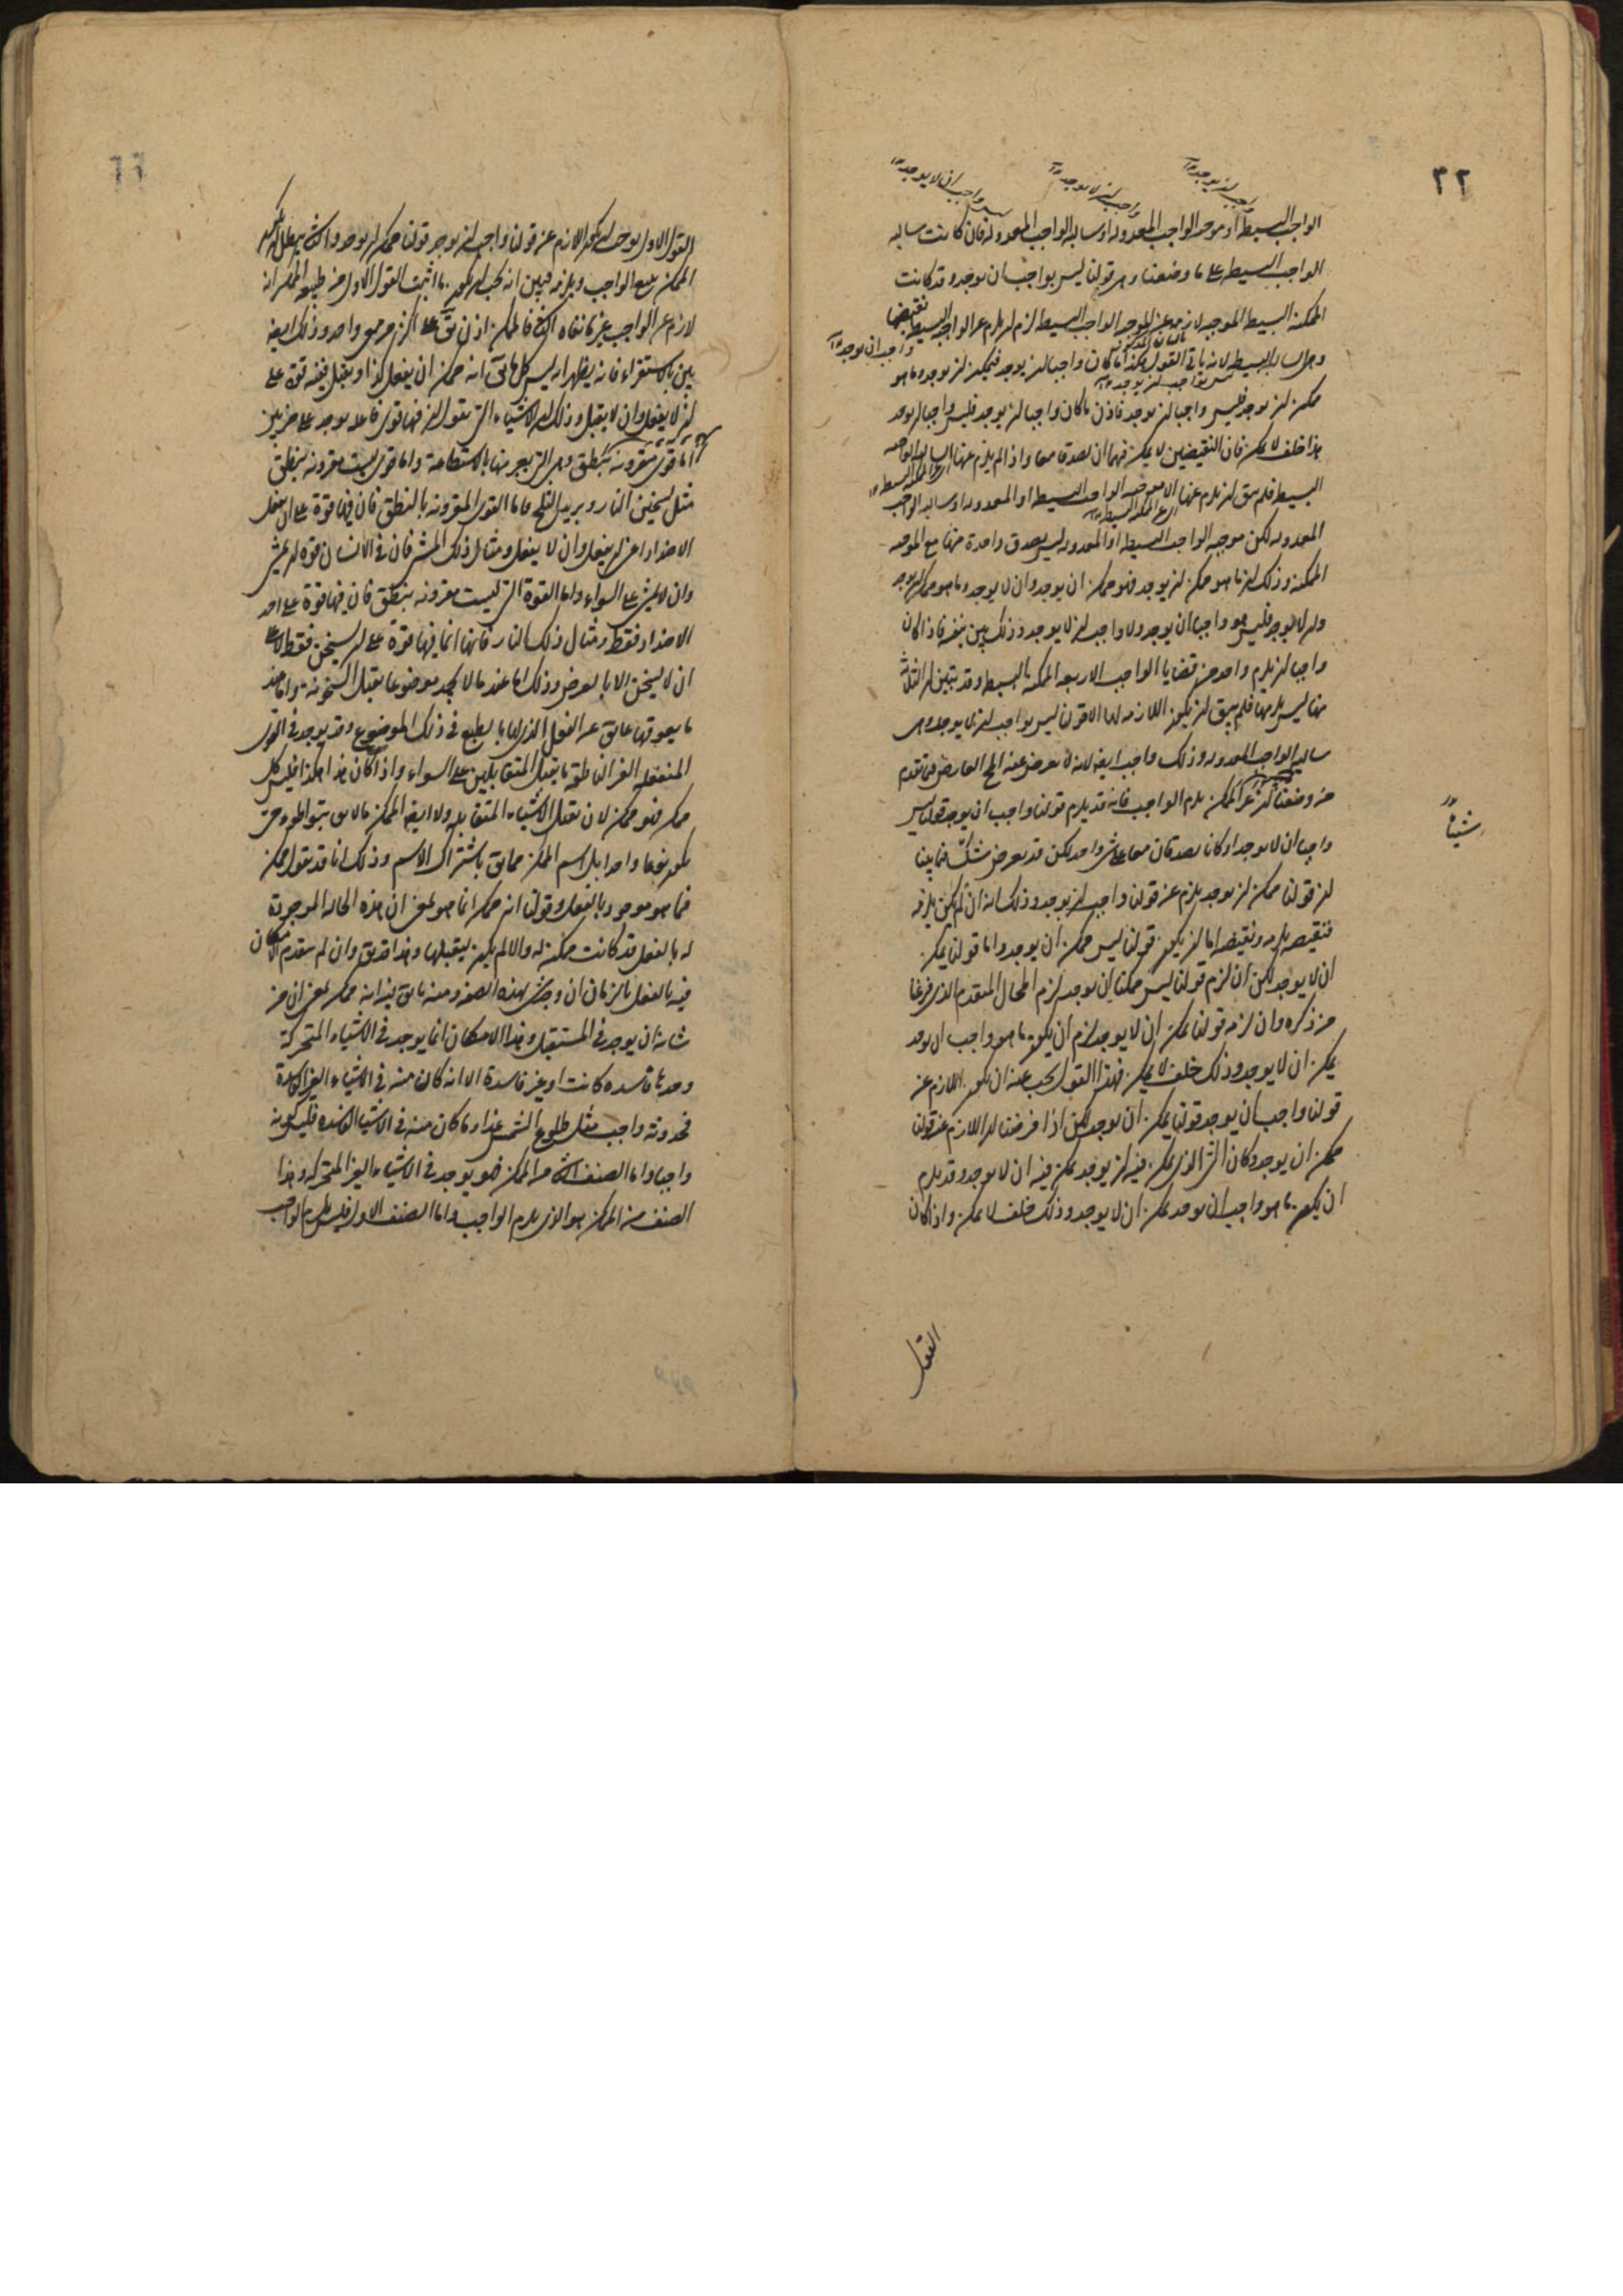 ٣٢
واجب ان يوجد
واجب ان لا يوجد
ليس واجب ان لا يوجد
الواجب البسيط او موجبه الواجب المعدوله او سالبه الواجب المعدوله فان كانت سالبه
الواجب البسيط على ما وضعنا وهى قولنا ليس بواجب ان يوجد وقد كانت
الممكنه البسيطه الموجبه لازمه عن الموجبه الواجب البسيطه لزم ان يلزم عن الواجب البسيط نقيضها
وهى السالبه البسيطه لانه ياتى القول هكذا ما كان واجبا ان يوجد فممكن ان يوجد وما هو
ممكن ان يوجد فليس واجبا ان يوجد فاذن ما كان واجبا ان يوجد فليس واجبا ان يوجد
هذا خلف لا يمكن فان النقيضين لا يمكن فيهما ان يصدقا معا واذا لم يلزم عنها السالبه الواجبه
البسيطه فلم يبق ان يلزم عنها الا موجبه الواجب البسيطه او المعدوله او سالبه الواجب
المعدوله لكن موجبه الواجب البسيطه او المعدوله ليس يصدق واحدة منها مع الموجبه
الممكنه وذلك ان ما هو ممكن ان يوجد فهو ممكن ان يوجد وان لا يوجد وما هو ممكن ان يوجد
وان لا يوجد فليس هو واجبا ان يوجد ولا واجب ان لا يوجد وذلك بين بنفسه فاذا كان
واجبا ان يلزم واحد من قضايا الواجب الاربعه الممكنه البسيطه وقد تبين ان الثلاث
منها ليس يلزمها فلم يبق ان يكون اللازمه لها الا قولنا ليس بواجب ان لا يوجد وهى
سالبه الواجب المعدوله وذلك واجب ايضا لانه لا يعرض عنه المحال العارض فيما تقدم
من وضعنا ان عن الممكن يلزم الواجب فانه قد يلزم قولنا واجب ان يوجد قولنا ليس
واجبا ان لا يوجد اذ كانا يصدقان معا على شئ واحد لكن قد يعرض شك فيما بينا
ان قولنا ممكن ان يوجد يلزم عن قولنا واجب ان يوجد وذلك انه ان لم يكن يلزمه
فنقيضه يلزمه ونقيضه اما ان يكون قولنا ليس ممكن ان يوجد واما قولنا يمكن
ان لا يوجد لكن ان لزم قولنا ليس ممكنا ان يوجد لزم المحال المتقدم الذى فرغنا
من ذكره وان لزمه قولنا يمكن ان لا يوجد لزم ان يكون ما هو واجب ان يوجد
يمكن ان لا يوجد وذلك خلف لا يمكن فهذا القول يجب عنه ان يكون اللازم عن
قولنا واجب ان يوجد قولنا يمكن ان يوجد لكن اذا فرضنا ان اللازم عن قولنا
ممكن ان يوجد وكان الشئ الذى يمكن فيه ان يوجد يمكن فيه ان لا يوجد وقد يلزم
ان يكون ما هو واجب ان يوجد يمكن ان لا يوجد وذلك خلف لا يمكن واذا كان
شيئا
القول
القول الاول يوجب ان يكون اللازم عن قولنا واجب ان يوجد قولنا ممكن ان يوجد والثانى يبطل ان يكون
الممكن يتبع الواجب ويلزمه فبين انه يجب ان يكون ما اثبت القول الاول من طبيعه الممكن انه
لازم عن الواجب غير ما نفاه الثانى فالممكن اذن يقال على اكثر من معنى واحد وذلك ايضا
بين بالاستقراء فانه يظهر انه ليس كل ما يقال انه ممكن ان يفعل كذا او يقبل ففيه قوة على
ان لا يفعل وان لا يقبل وذلك ان الاشياء التى نقول ان فيها قوى فاعله توجد على ضربين
اما قوى مقرونه بنطق وهى التى يعبر عنها بالاستطاعة واما قوى ليست مقرونه بنطق
مثل تسخين النار وتبريد الثلج فاما القوى المقرونه بالنطق فان فيها قوة على ان تفعل
الاضداد اعنى ان يفعل وان لا يفعل ومثال ذلك المشى فان فى الانسان قوة ان يمشى
وان لا يمشى على السواء واما القوة التى ليست مقرونه بنطق فان فيها قوة على احد
الاضداد فقط ومثال ذلك النار فانها انما فيها قوة على ان تسخن فقط لا على
ان لا تسخن الا بالعرض وذلك اما عند ما لا تجد موضوعا يقبل السخونة واما عند
ما يعوقها عائق عن الفعل الذى لها بالطبع فى ذلك الموضوع وقد يوجد فى القوى
المنفعله الغير الناطقه ما يقبل المتقابلين على السواء واذا كان هذا هكذا فليس كل
ممكن فهو ممكن لان يقبل الاشياء المتقابله ولا ايضا الممكن ما لا يق بتواطؤ حتى
يكون نوعا واحدا بل اسم الممكن مما يق باشتراك الاسم وذلك انا قد نقول ممكن
فيما هو موجود بالفعل وقولنا انه ممكن انما هو بمعنى ان هذه الحاله الموجودة
له بالفعل قد كانت ممكنه له والا لم يكن ليقبلها وهذا قد يق وان لم يتقدم الامكان
فيه بالفعل بالزمان ان وجد شئ بهذه الصفة ومنه ما يق فيه انه ممكن بمعنى ان من
شانه ان يوجد فى المستقبل وهذا الامكان انما يوجد فى الاشياء المتحركة
وحدها فاسده كانت او غير فاسدة الا انه كان منه فى الاشياء الغير الفاسدة
فحدوثه واجب مثل طلوع الشمس غدا وما كان منه فى الاشياء الفاسده فليس كونه
واجبا واما الصنف الثانى من الممكن فهو يوجد فى الاشياء الغير المتحركه وهذا
الصنف من الممكن هو الذى يلزم الواجب واما الصنف الاول فليس يلزم الواجب